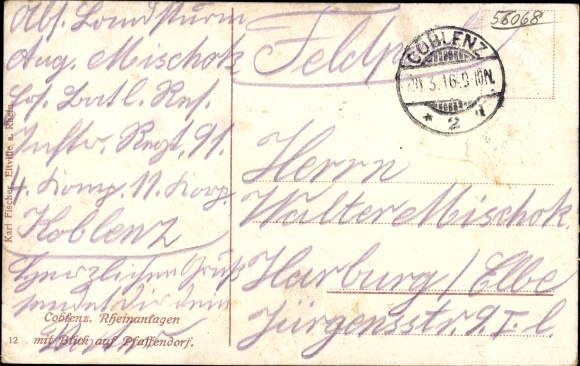 Abs. Landsturm
Aug. Mischok
Ers. Batl. Res.
Inftr. Regt. 91.
4. Komp. 11. Korp.
Koblenz
Herzlichen Gruß
sendet Dir dein
Feldpost
56068
COBLENZ
3.16.9-10N.
* 2
Herrn
Walter Mischok.
Harburg/Elbe
Jürgensstr. 9. I. l.
Karl Fischer, Eltville a. Rhein
Coblenz. Rheinanlagen
12 . mit Blick auf Pfaffendorf.